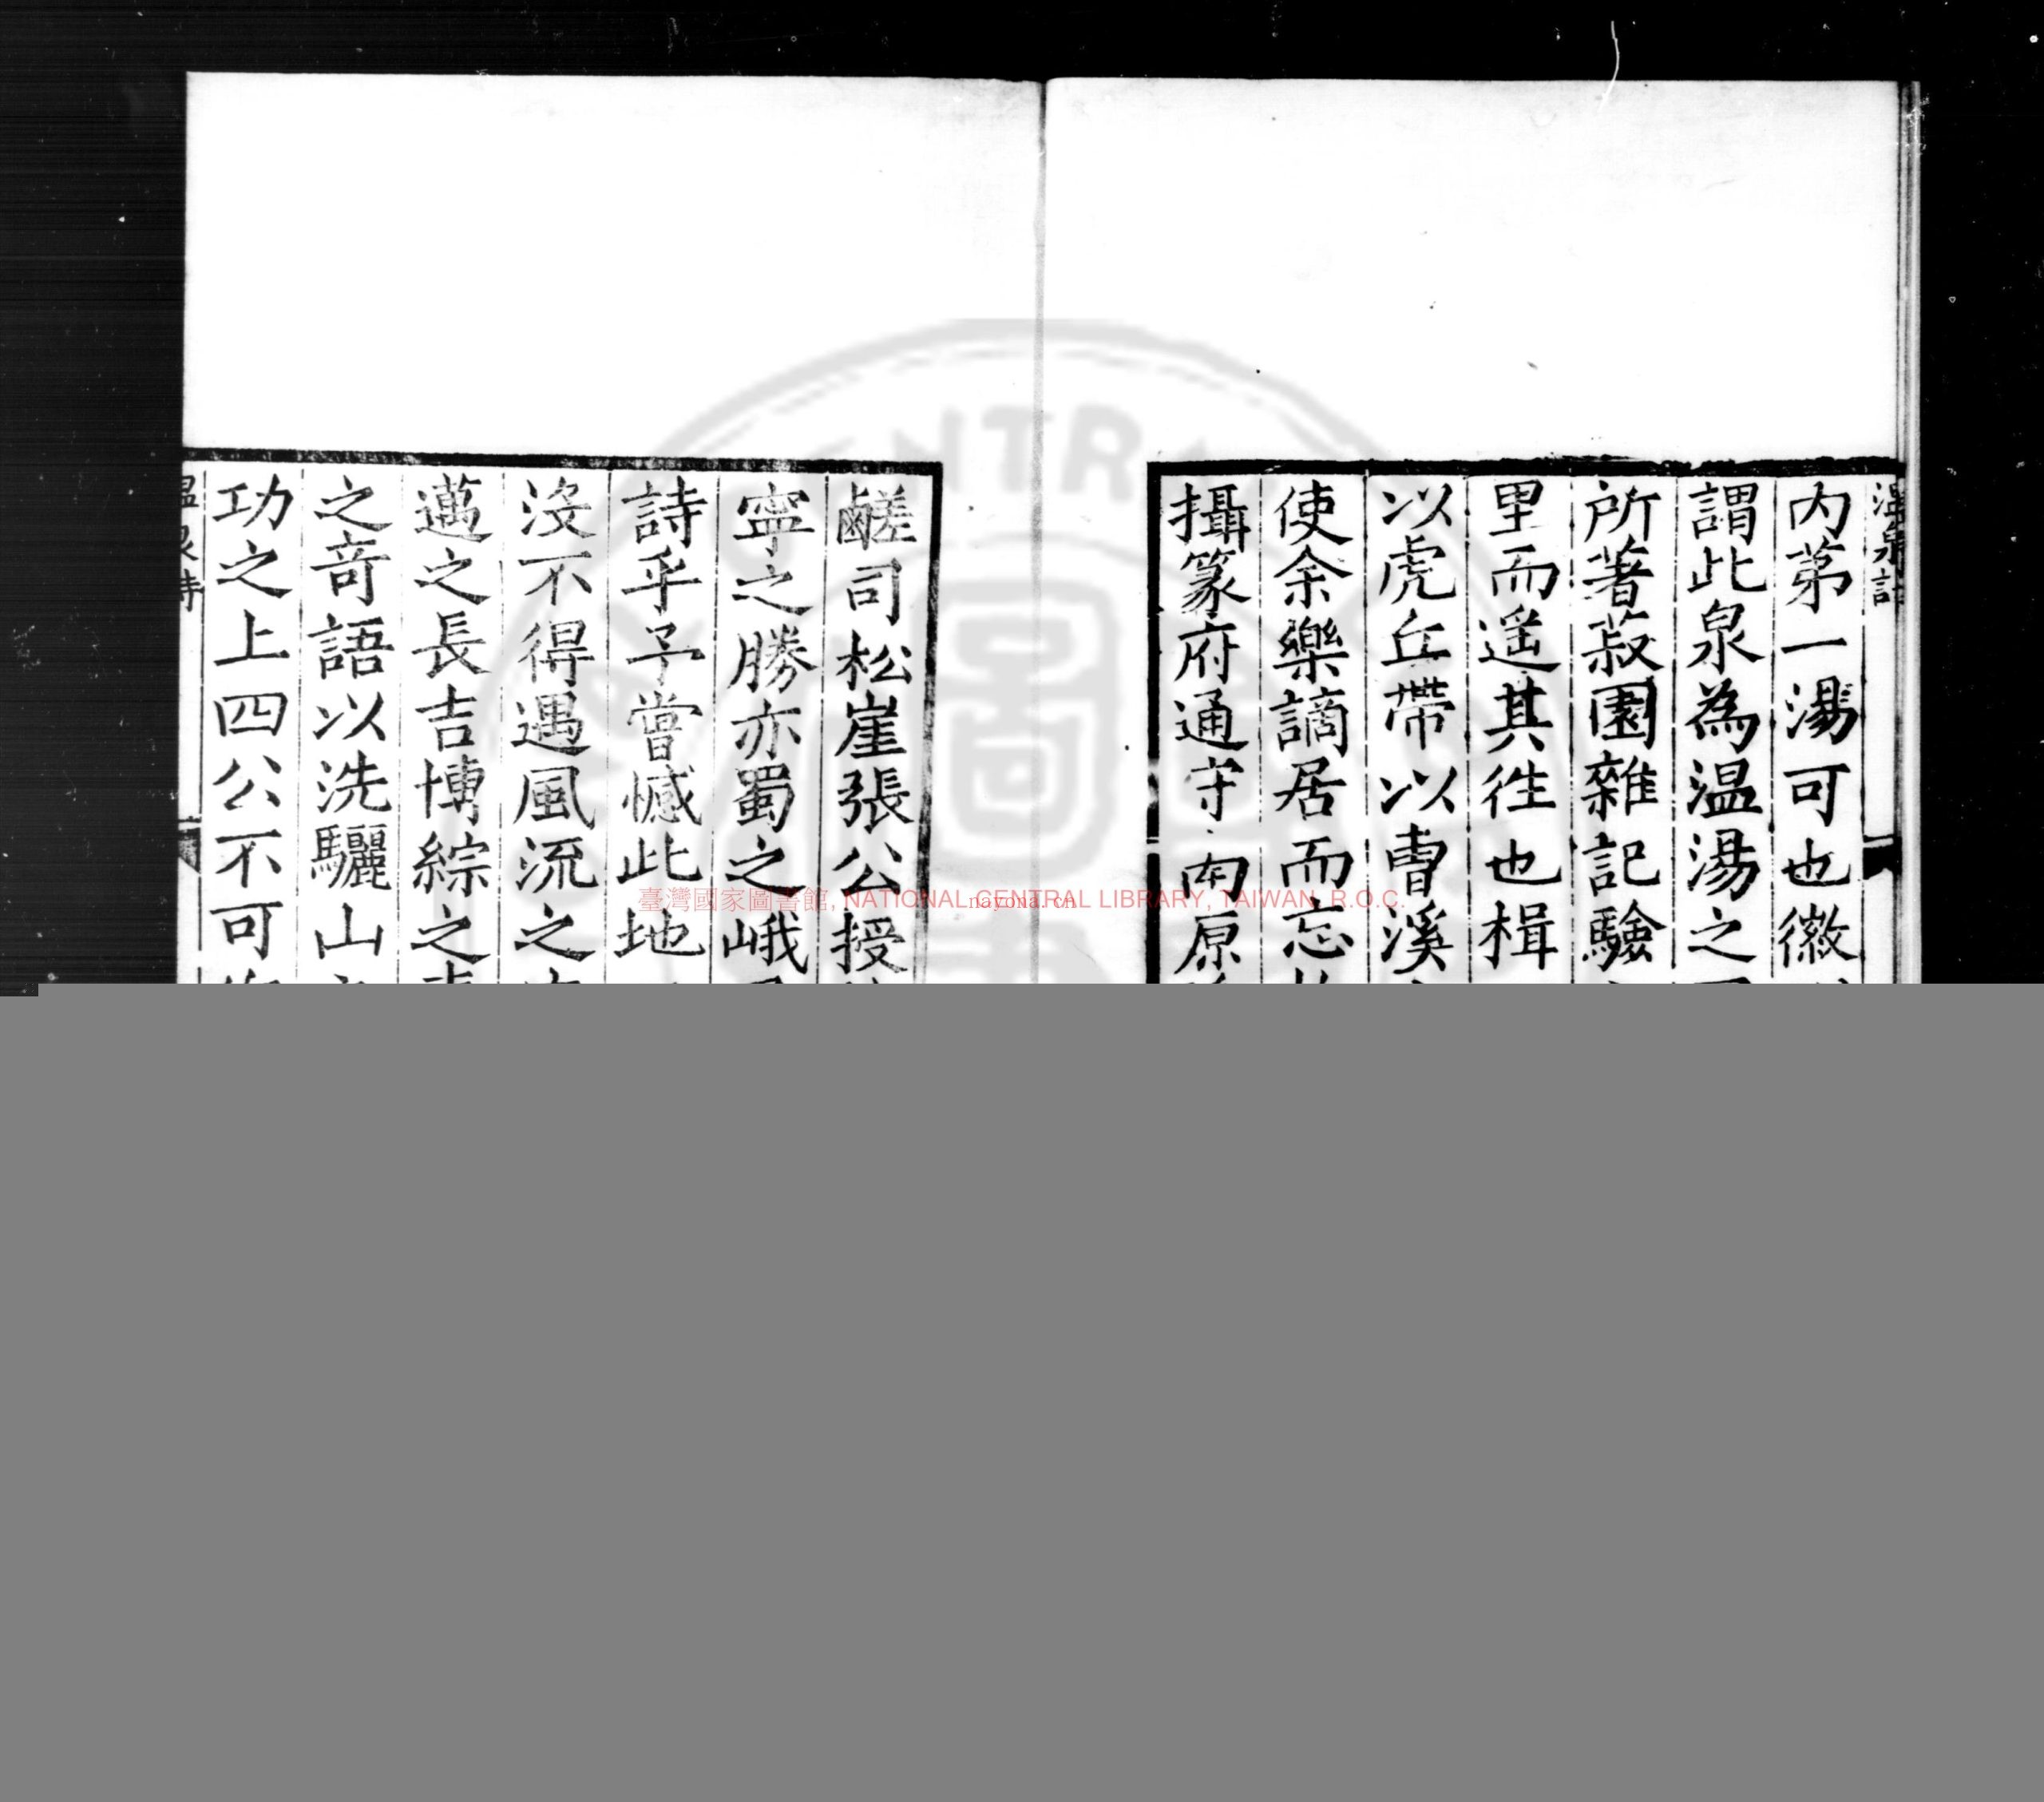 温泉詩
内苐一湯可也徽
謂此泉為温湯之
所著菽園雜記驗
里而遥其徃也楫
以虎丘帶以曹溪
使余樂謫居而忘
攝篆府通守南原
鹺司松崖張公授
寜之勝亦蜀之峨
詩乎予嘗憾此地
沒不得遇風流之
邁之長吉博綜之
之竒語以洗驪山
功之上四公不可
温泉詩
臺灣國家圖書館, NATIONAL CENTRAL LIBRARY, TAIWAN, R.O.C.
nayona.cn